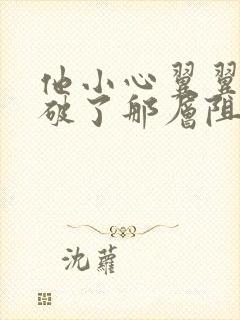 他小心翼翼
破了那层阻
沈蘿